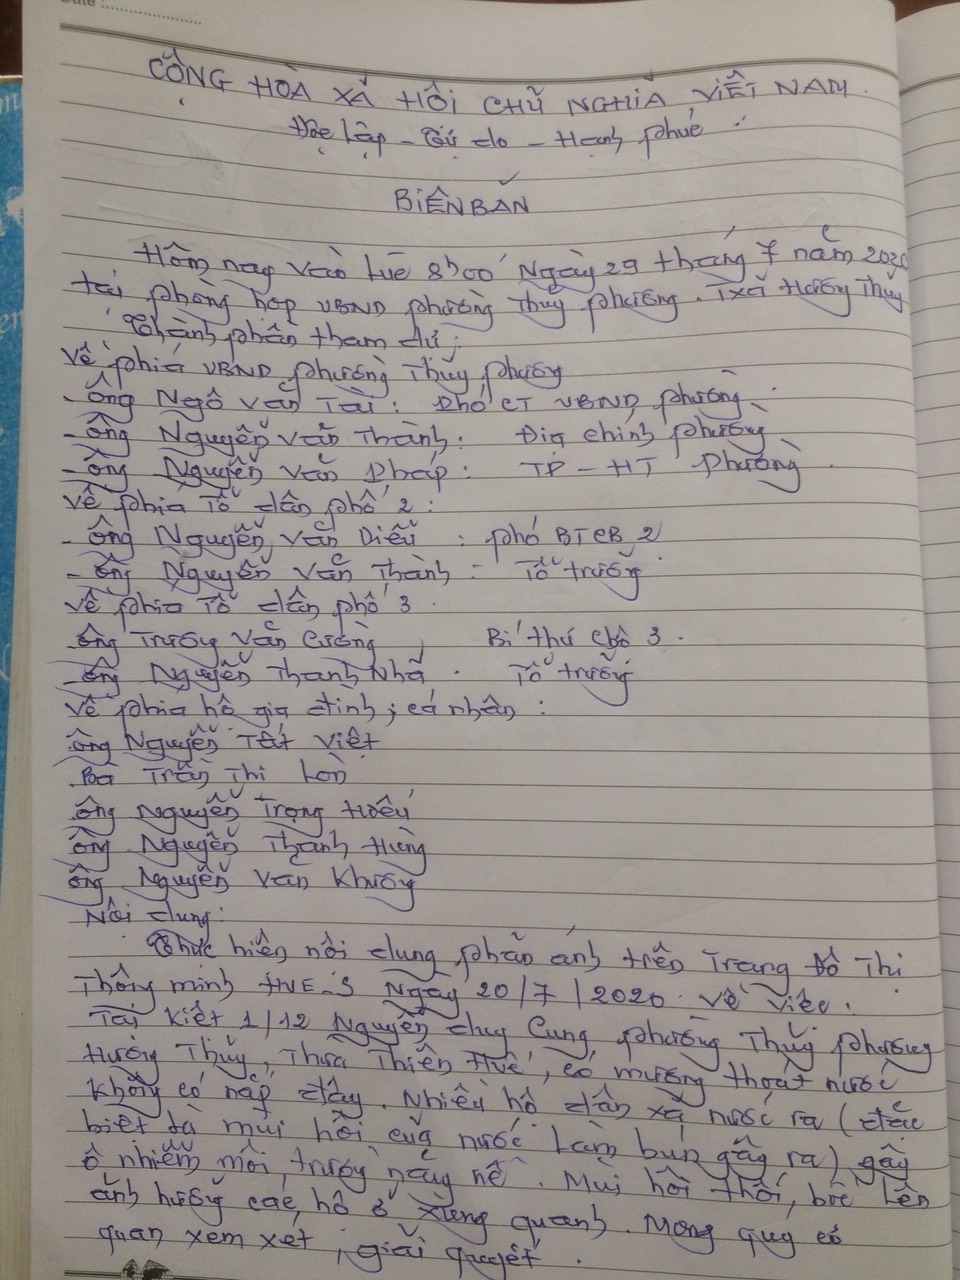 Date :
CỘNG HÒA XÃ HỘI CHỦ NGHĨA VIỆT NAM
Độc lập - Tự do - Hạnh phúc
BIÊN BẢN
Hôm nay vào lúc 8h00' Ngày 29 tháng 7 năm 2020
tại phòng họp UBND phường Thủy phương. Txã Hương Thủy
Thành phần tham dự:
Về phía UBND phường Thủy phương
- Ông Ngô Văn Tài: Phó CT UBND phường
- Ông Nguyễn Văn Thành: Địa chính phường
- Ông Nguyễn Văn Pháp: TP - HT phường
Về phía Tổ dân phố 2:
- Ông Nguyễn Văn Diễu : phó BTCB 2
- Ông Nguyễn Văn Thành: Tổ trưởng
Về phía Tổ dân phố 3.
- Ông Trương Văn Cường, Bí thư chbộ 3.
- Ông Nguyễn Thanh Nhã. Tổ trưởng
Về phía hộ gia đình; cá nhân:
Ông Nguyễn Tất Việt
Bà Trần Thị Lờn
Ông Nguyễn Trọng Hiếu
Ông Nguyễn Thanh Hùng
Ông Nguyễn Văn Khương
Nội dung:
Thực hiện nội dung phản ánh trên Trang Đô Thị
Thông minh HUE-S Ngày 20/7/2020. Về việc.
Tại Kiệt 1/12 Nguyễn duy Cung phường Thủy phương
Hương Thủy, Thừa Thiên Huế, có mương thoát nước
không có nắp đậy. Nhiều hộ dân xả nước ra (đặc
biệt là mùi hôi của nước làm bún gây ra) gây
ô nhiễm môi trường nặng nề. Mùi hôi thối, bốc lên
ảnh hưởng các hộ ở xung quanh. Mong quý cơ
quan xem xét, giải quyết.